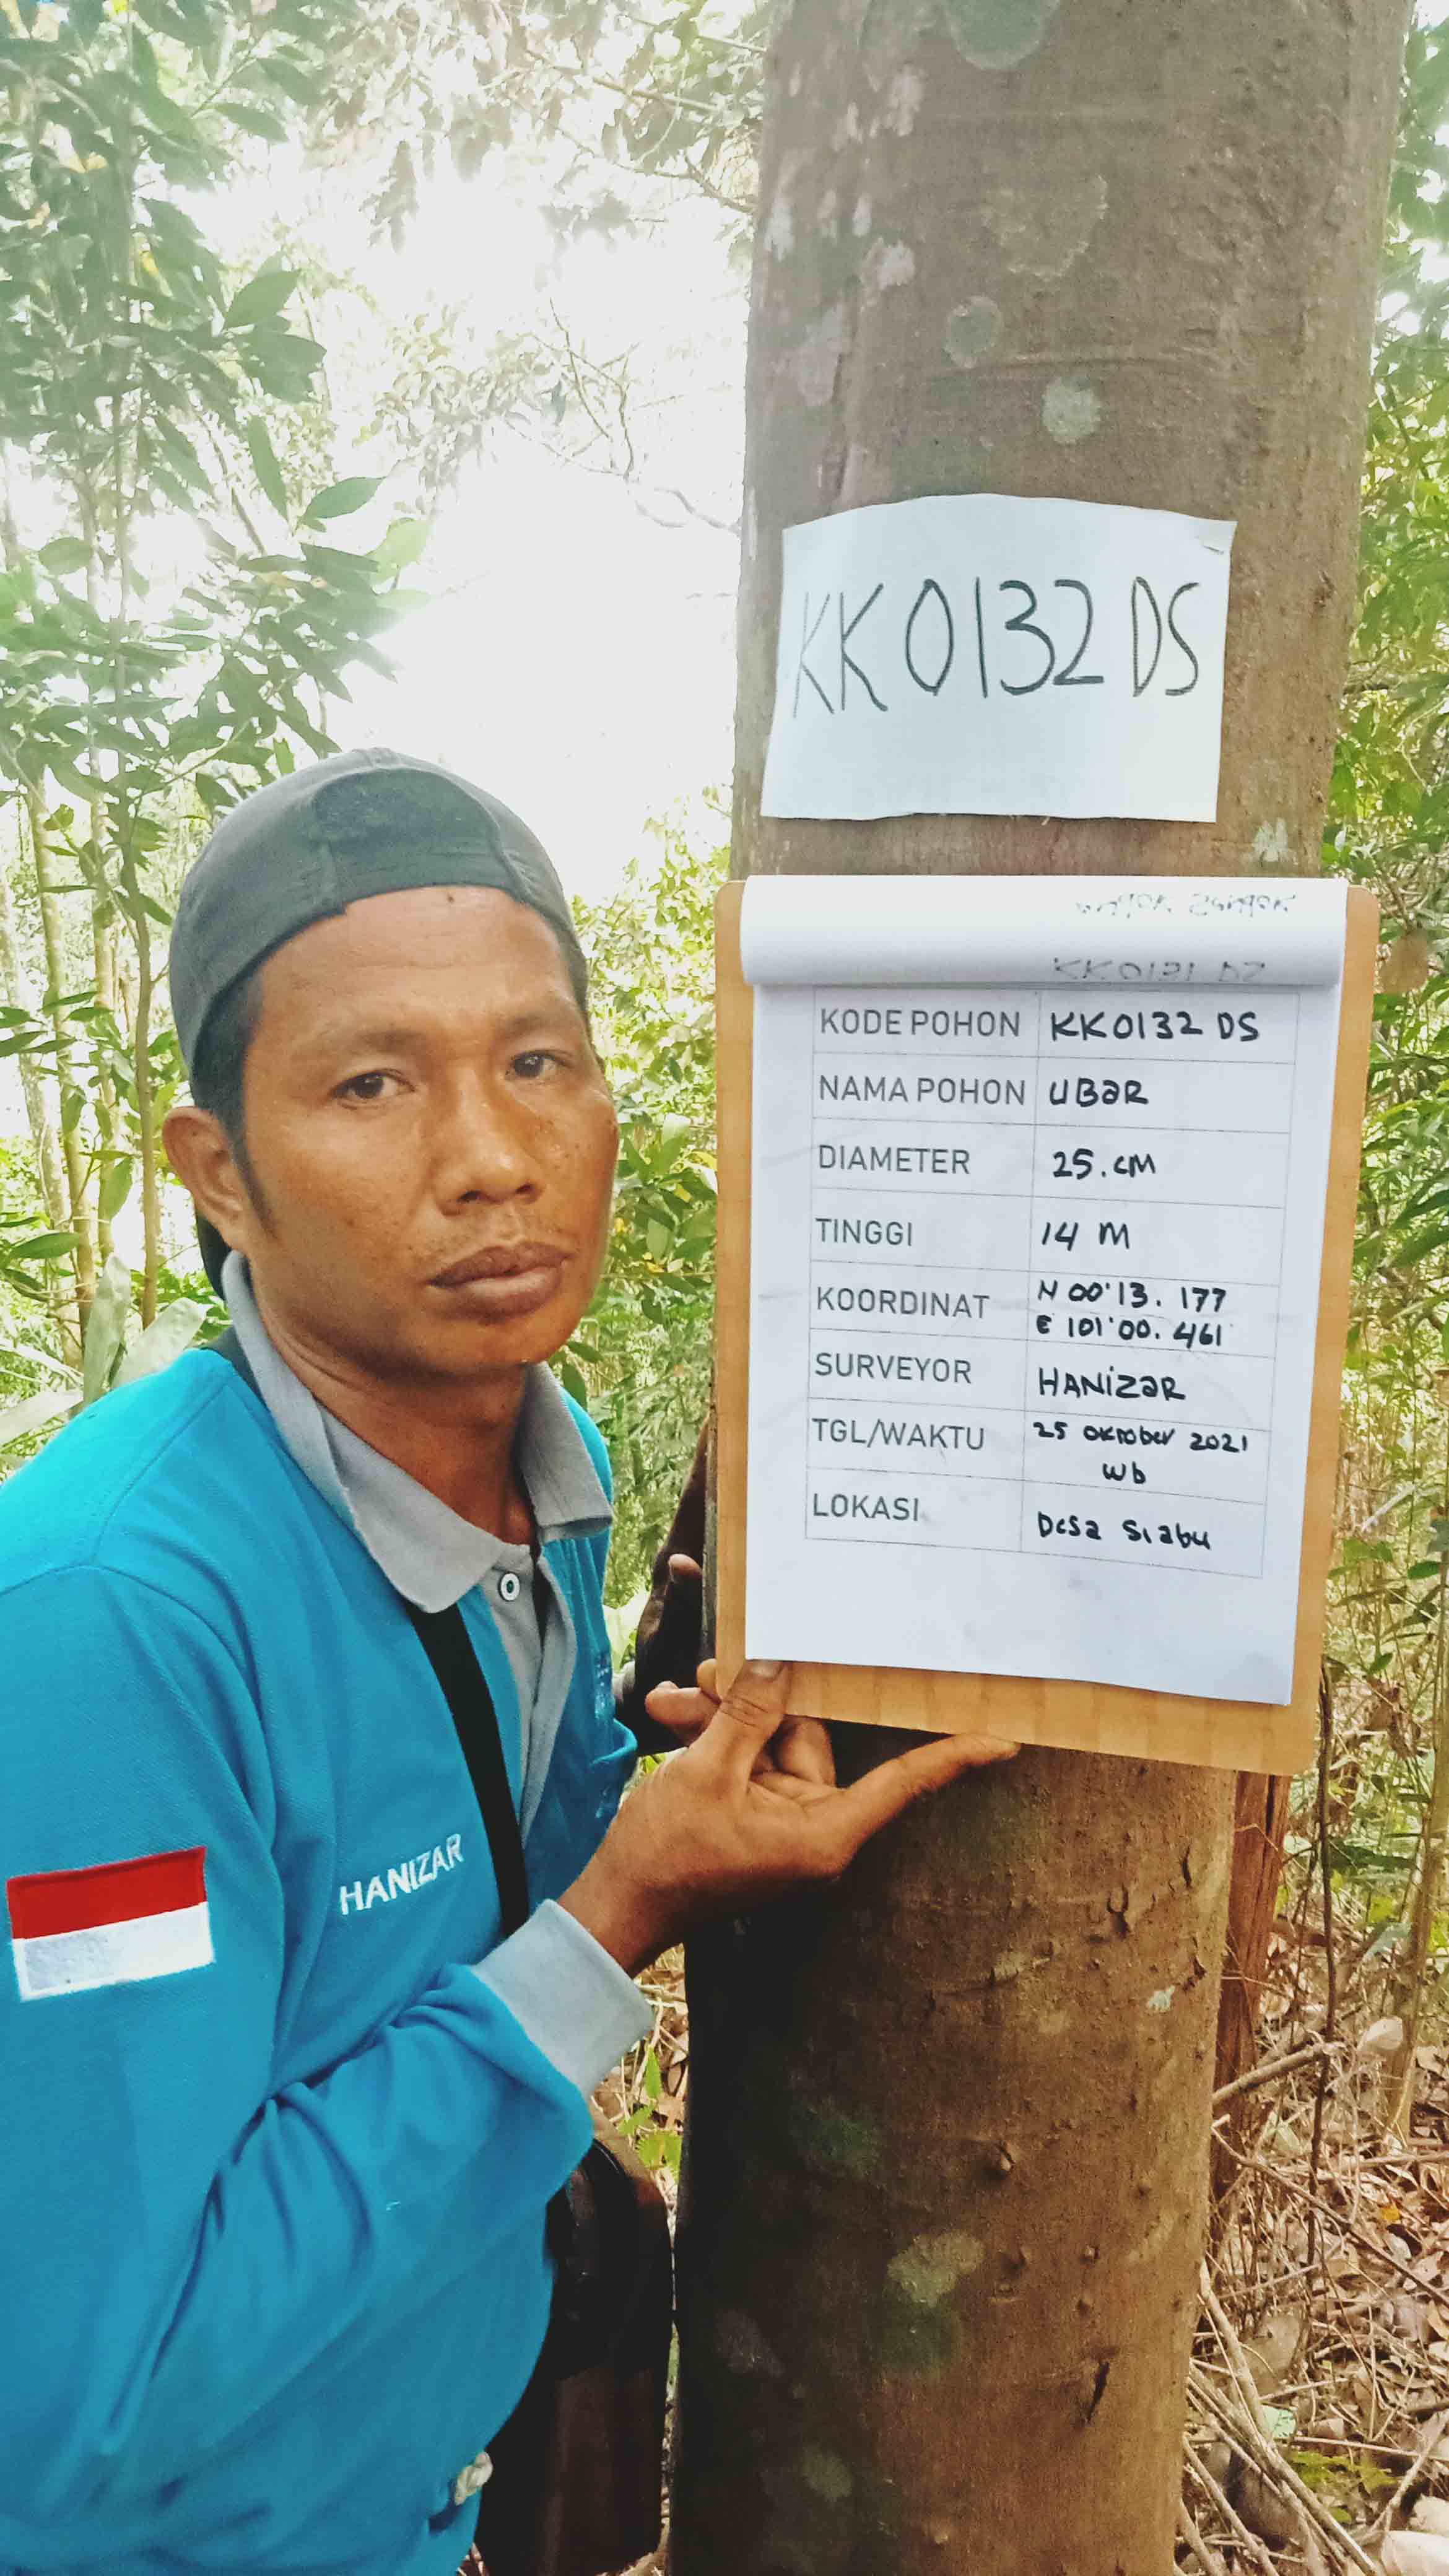 KK0132 DS
KK0131 DS
KODE POHON KK0132 DS
NAMA POHON UBaR
DIAMETER 25.cM
TINGGI 14 M
KOORDINAT N 00'13. 177
E 101'00. 461
SURVEYOR HANiZaR
TGL/WAKTU 25 oktober 2021
wb
LOKASI Desa Siabu
HANIZAR